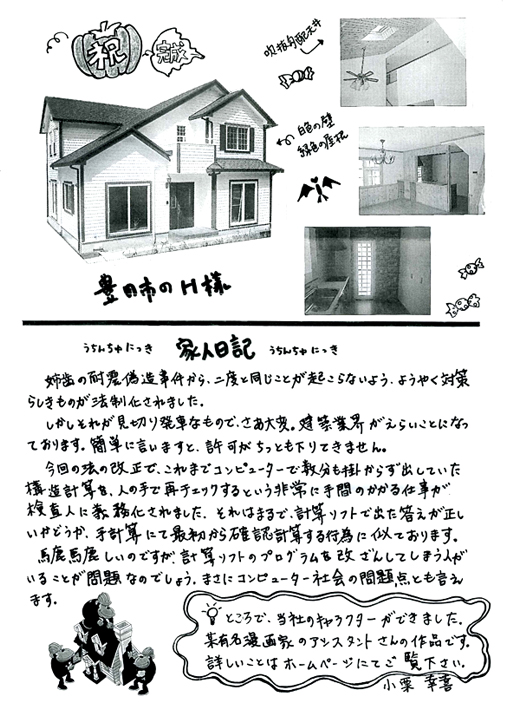 祝
完成
吹抜勾配天井
白色の壁
緑色の屋根
豊田市のH様
うちんちゅにっき 家人日記 うちんちゅにっき
姉歯の耐震偽造事件から、二度と同じことが起こらないよう、ようやく対策
らしきものが法制化されました。
しかしそれが見切り発車なもので、さあ大変。建築業界がえらいことになっ
ております。簡単に言いますと、許可がちっとも下りてきません。
今回の法の改正で、これまでコンピューターで数分も掛からず出していた
構造計算を、人の手で再チェックするという非常に手間のかかる仕事が
検査人に義務化されました。それはまるで、計算ソフトで出た答えが正し
いかどうか、手計算にて最初から確認計算する行為に似ております。
馬鹿馬鹿しいのですが、計算ソフトのプログラムを改ざんしてしまう人が
いることが問題なのでしょう。まさにコンピューター社会の問題点とも言え
ます。
ところで、当社のキャラクターができました。
某有名漫画家のアシスタントさんの作品です。
詳しいことはホームページにてご覧下さい。
小栗 幸喜